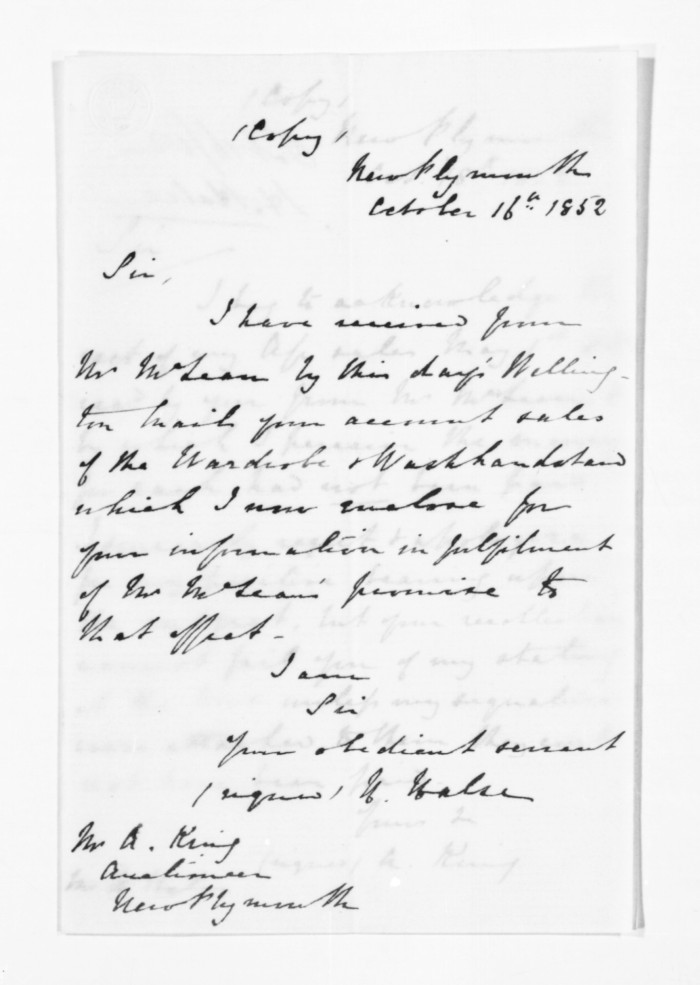 (Copy)
New Plymouth
October 16th 1852
Sir,
I have received from
Mr McLean by this day's Welling-
ton Mail, your account sales
of the Wardrobe & Washhandstand
which I now enclose for
your information in fulfilment
of Mr McLean's promise to
that effect -
I am
Sir
Your obedient servant
(signed) H. Halse
Mr A. King
Auctioneer
New Plymouth